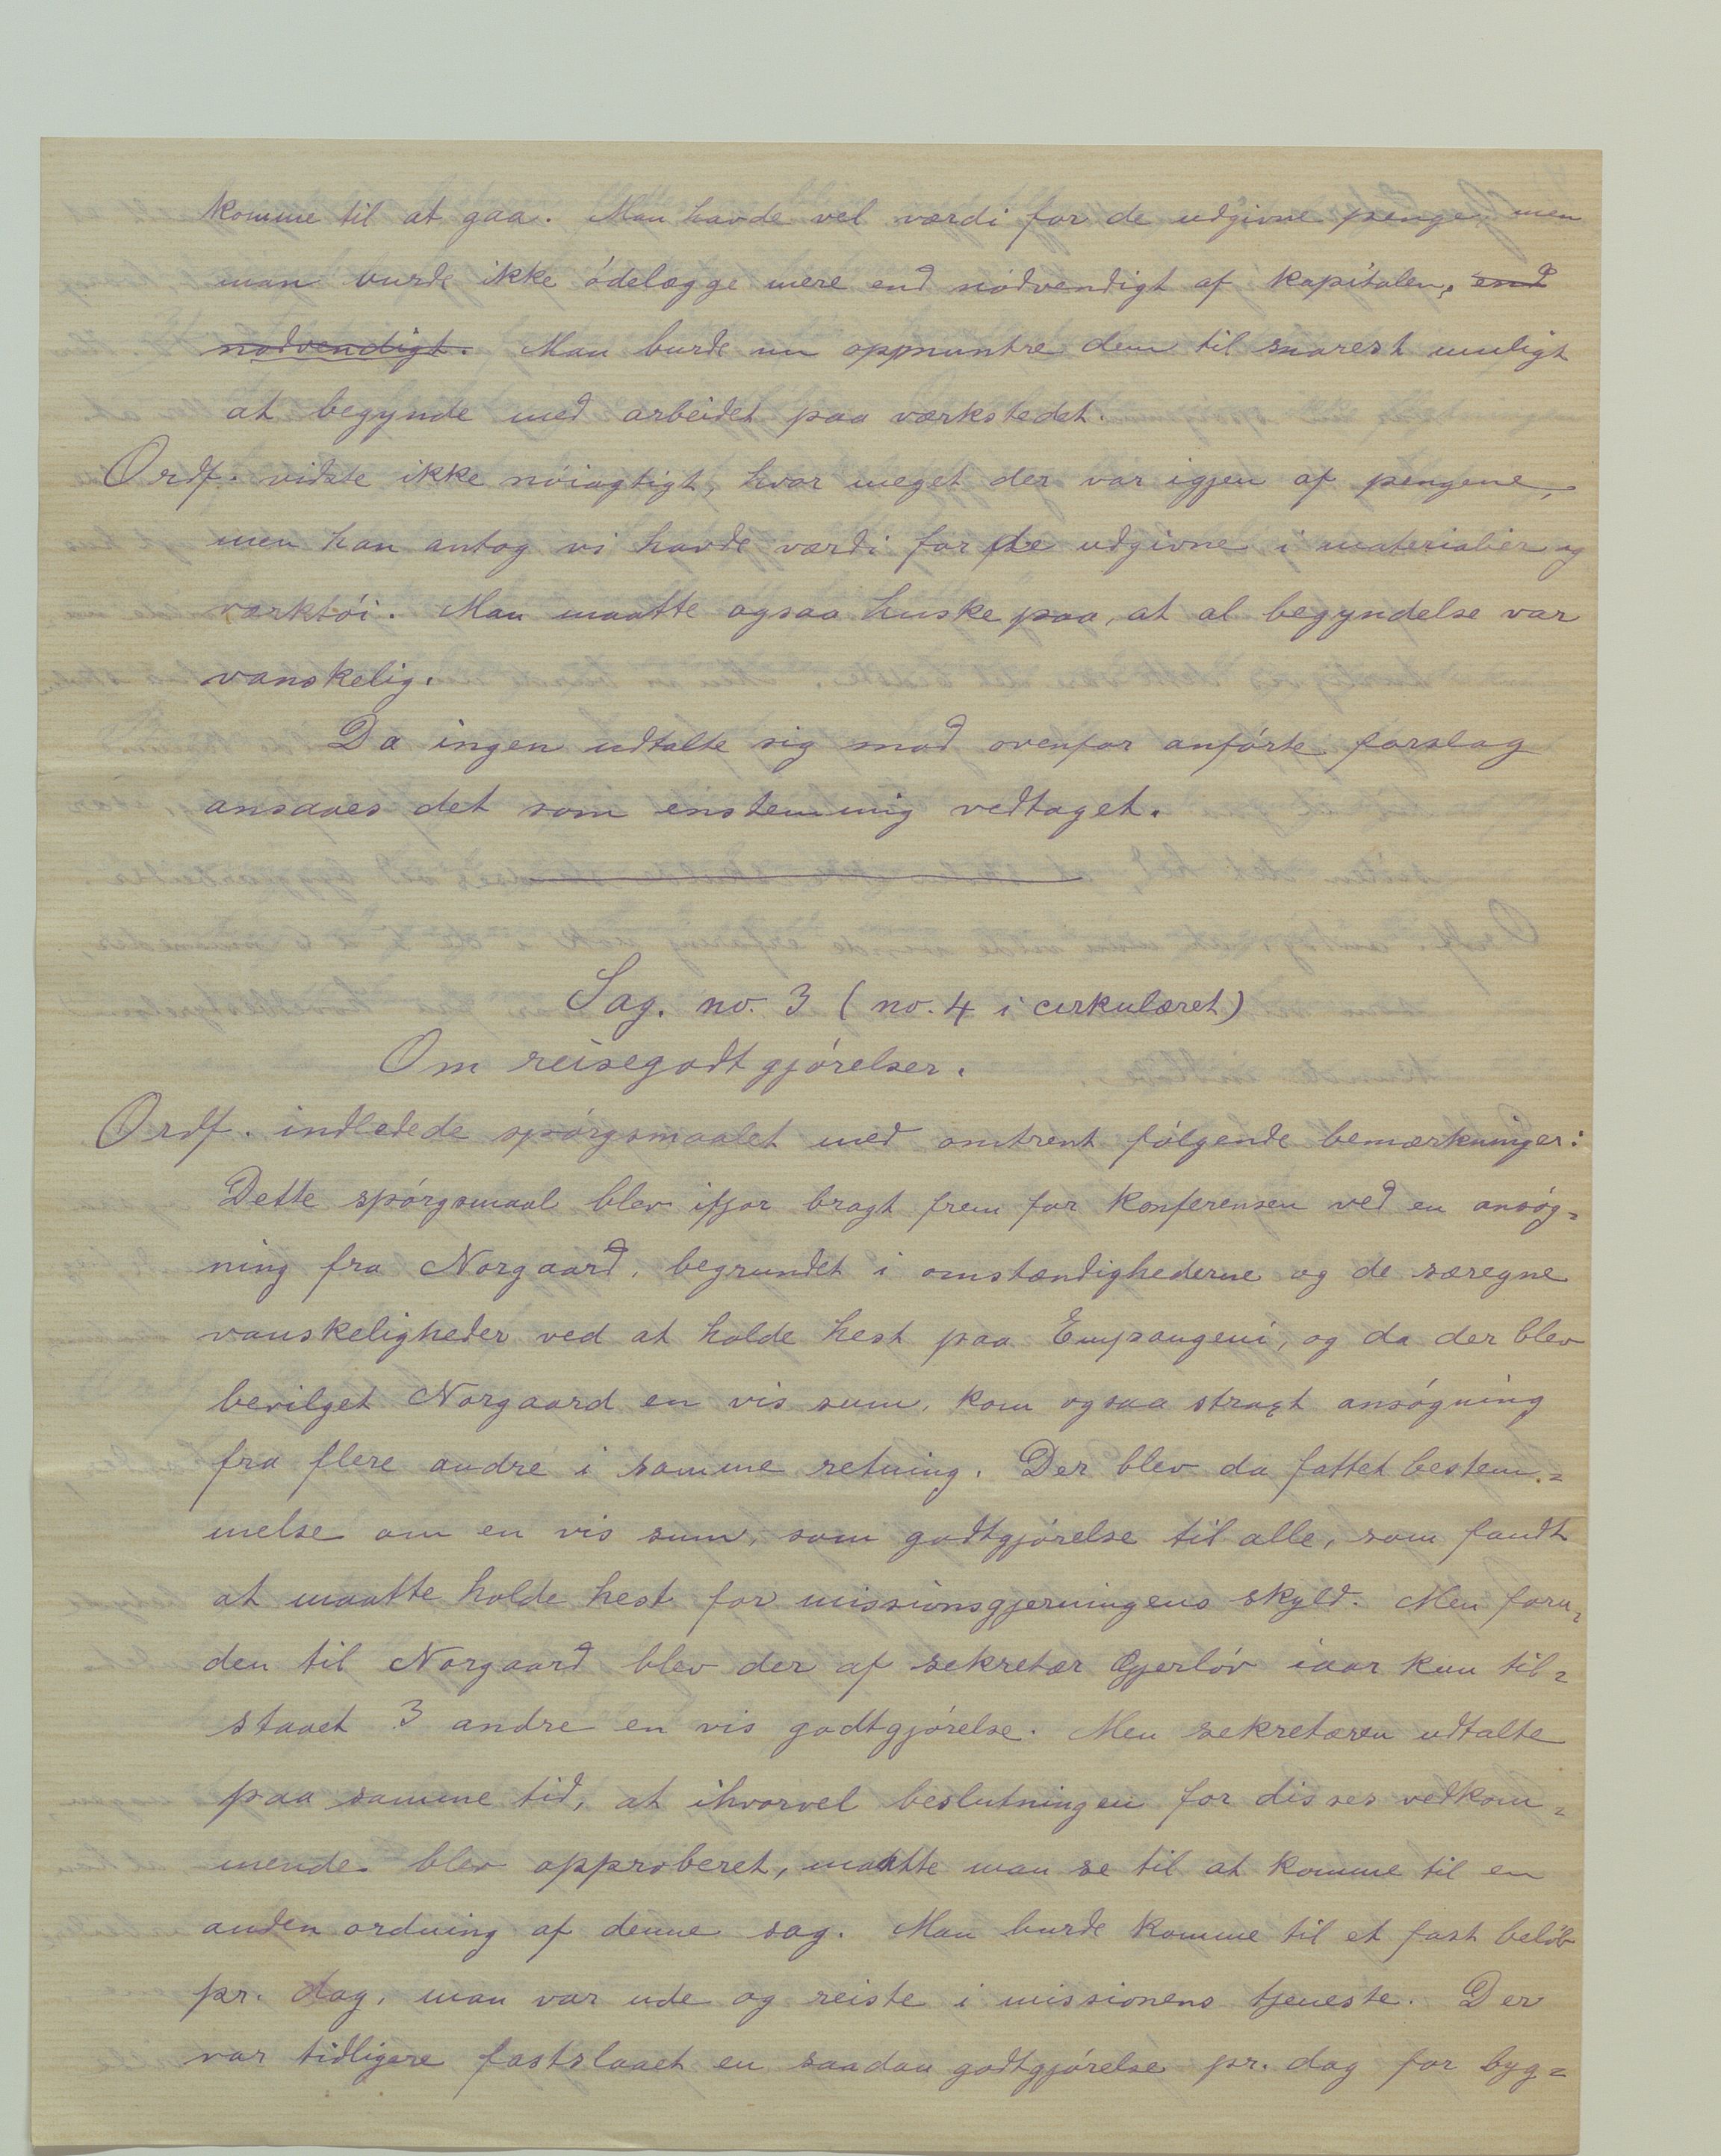 komme til at gaa. Man havde vel værdi for de udgivne penge, men
man burde ikke ódelægge mere end nódvendigt af kapitalen, end
nodvendigt. Man burde nu oppmuntre dem til snarest muligt
at begynde med arbeidet paa værkstedet.
Ordf. vidste ikke nóiagtigt, hvor meget der var igjen af pengene,
men han antog vi havde værdi for de udgivne i materialier og
værktói. Man maatte ogsaa huske paa, at al begyndelse var
vanskelig.
Da ingen udtalte sig mod ovenfor anfórte forslag
ansaaes det som enstemmig vedtaget.
Sag. no. 3 (no. 4 i cirkulæret)
Om reisegodtgjórelser.
Ordf. indledede spórgsmaalet med omtrent fólgende bemærkninger:
Dette spórgsmaal blev ifjor bragt frem for konferensen ved en ansóg=
ning fra Norgaard, begrundet i omstændighederne og de særegne
vanskeligheder ved at holde hest paa Empangeni, og da der blev
bevilget Norgaard en vis sum, kom ogsaa stragt ansógning
fra flere andre i samme retning. Der blev da fattet bestem=
melse om en vis sum, som godtgjórelse til alle, som fandt
at maatte holde hest for missionsgjerningens skyld. Men foru=
den til Norgaard blev der af sekretær Gjerlów iaar kun til=
staaet 3 andre en vis godtgjórelse. Men sekretæren udtalte
paa samme tid, at ihvorvel beslutningen for disses vedkom=
mende blev approberet, maatte man se til at komme til en
anden ordning af denne sag. Man burde komme til et fast belób
pr. dag, man var ude og reiste i missionens tjeneste. Der
var tidligere fastslaaet en saadan godtgjórelse pr. dag for byg=